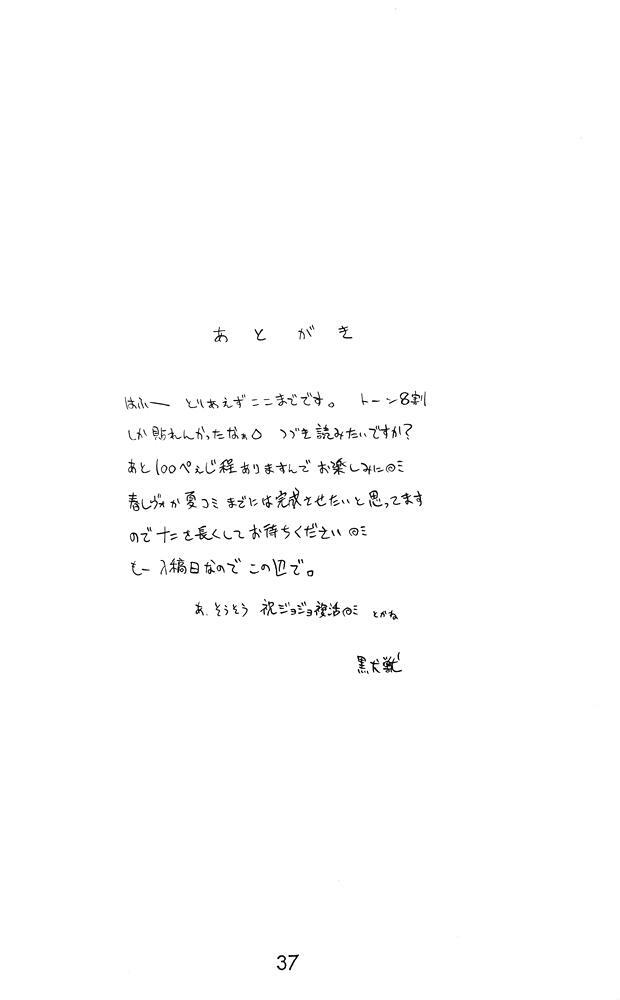 あとがき
はふー とりあえずここまでです。 トーン8割
しか貼れんかったなぁ つづき読みたいですか?
あと100ぺぇじ程ありますんでお楽しみに
春レヴォか夏コミまでには完成させたいと思ってます
ので ナニを長くしてお待ちください
もー入稿日なので この辺で。
あ、そうそう 祝ジョジョ復活 とかね
黒犬獣
37